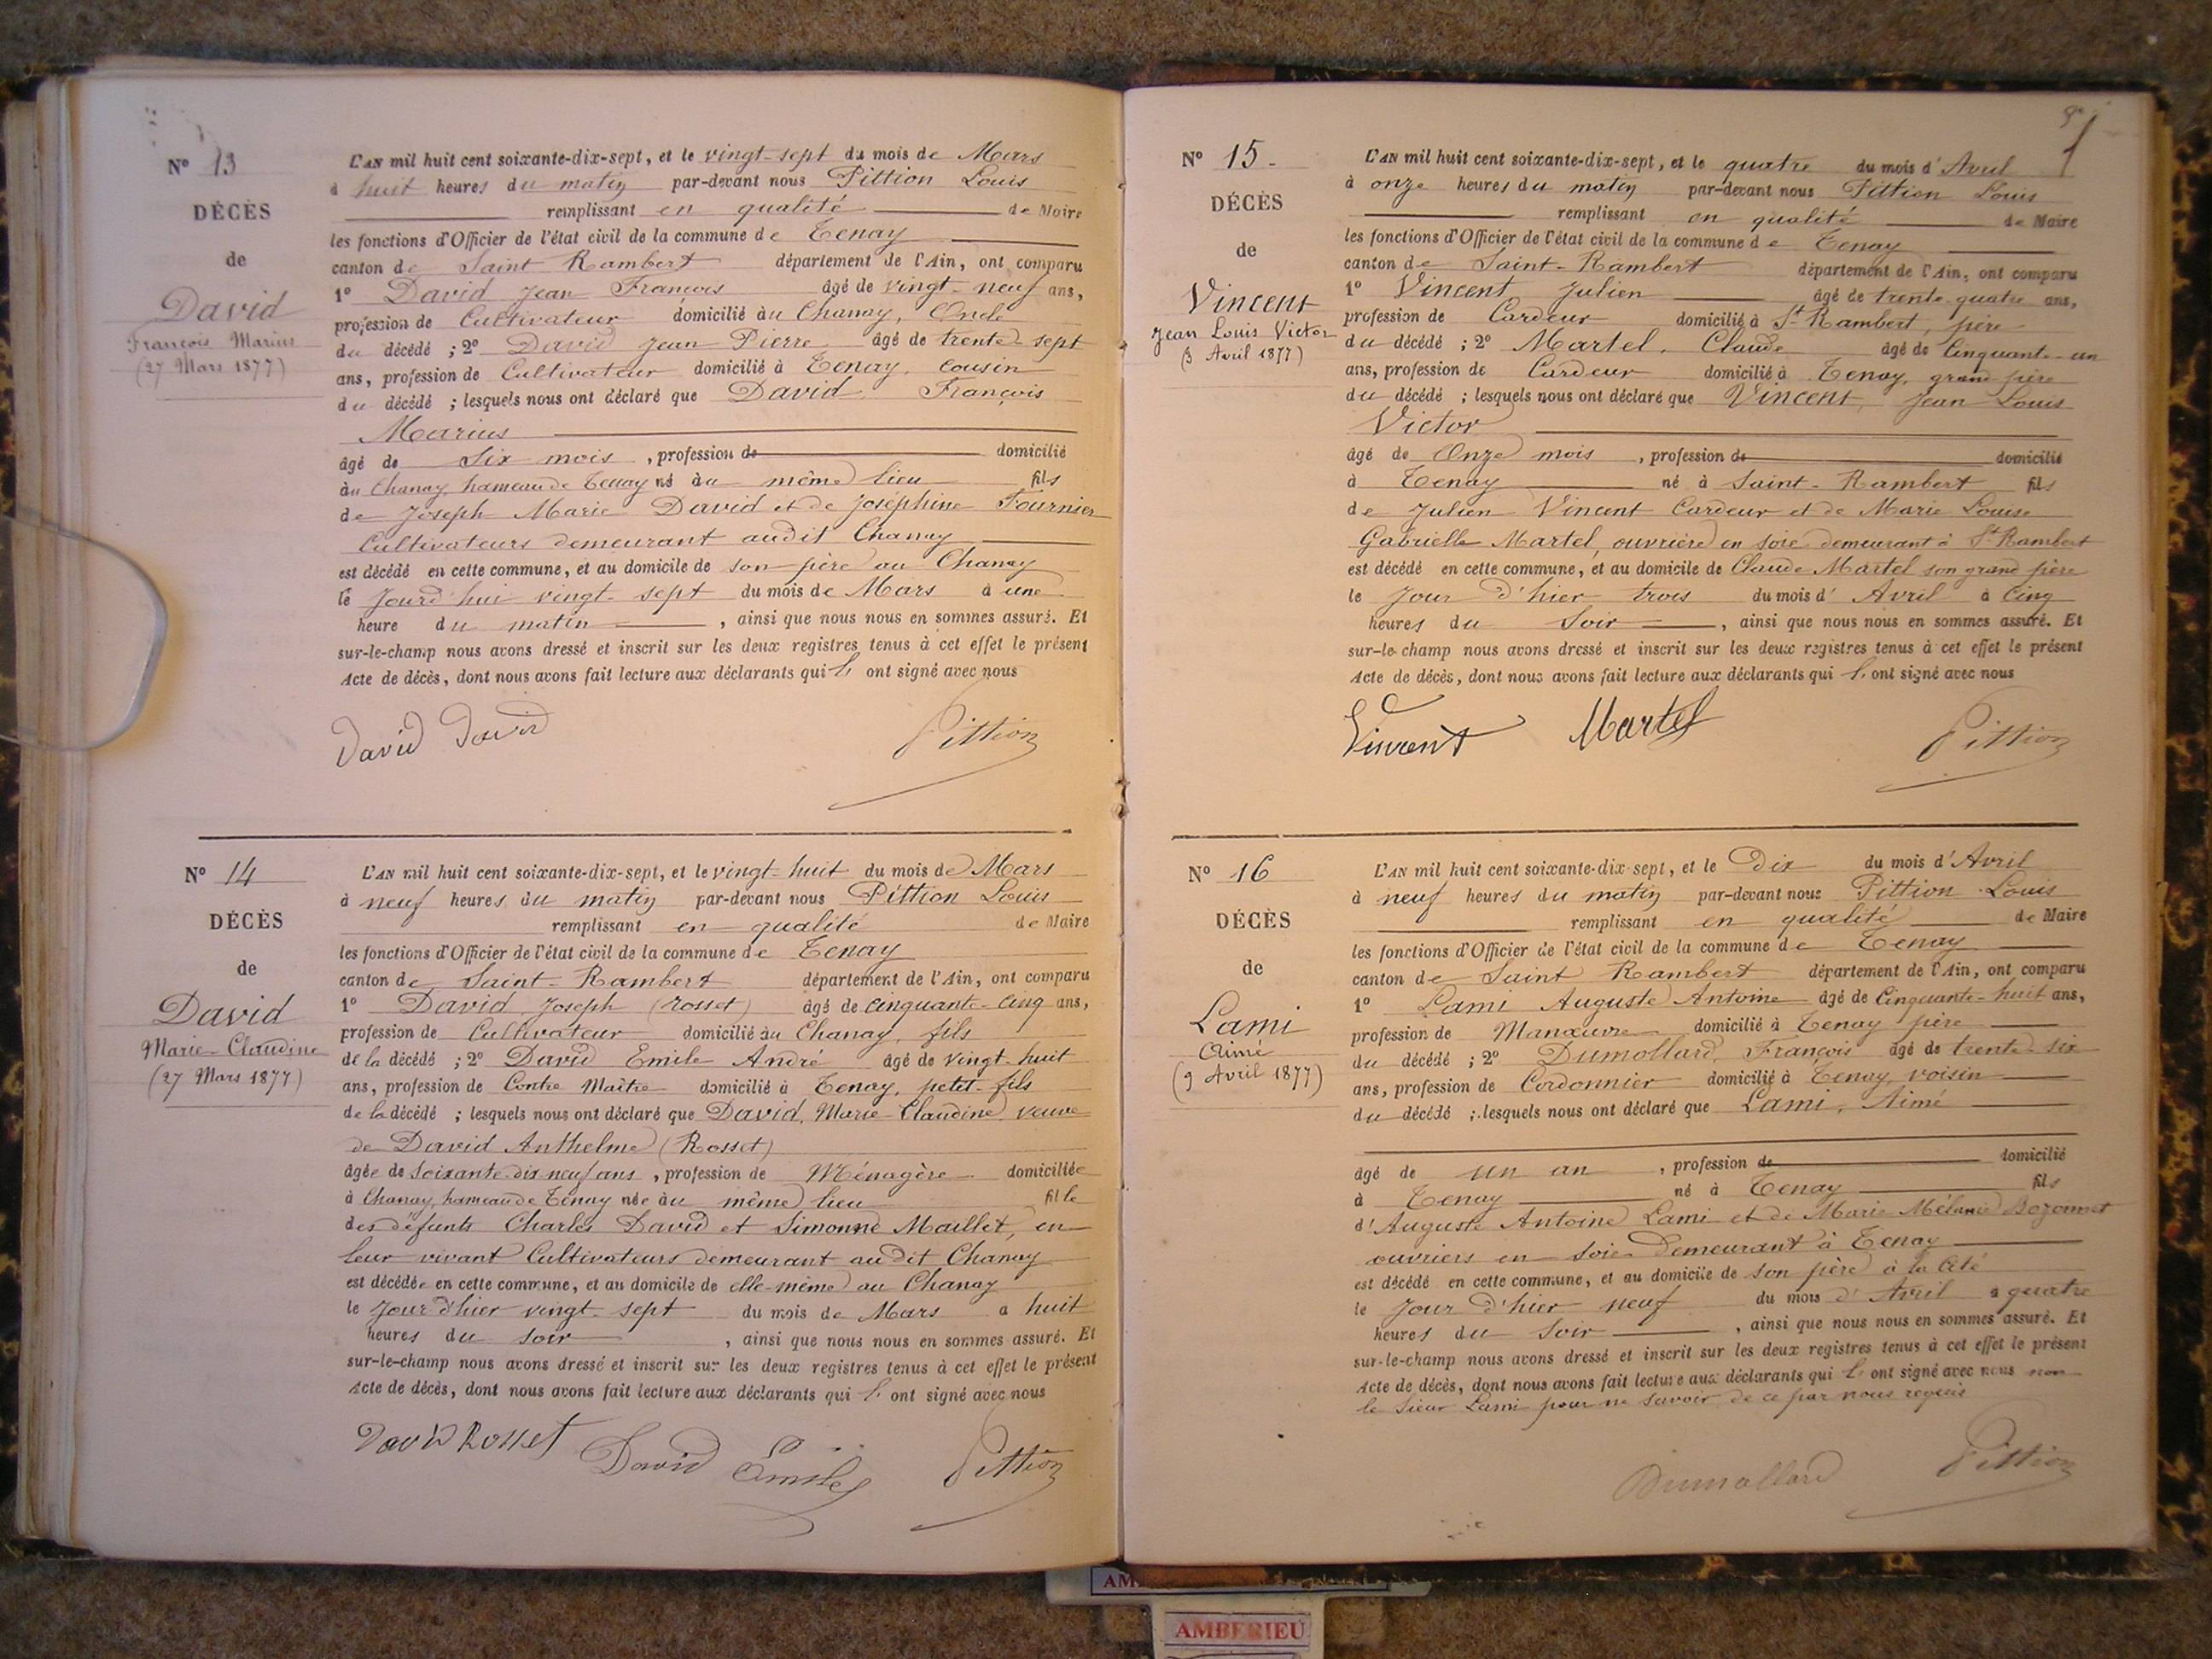 N° 13
DÉCÈS
de
David
François Marius
(27 Mars 1877)
L'AN mil huit cent soixante-dix-sept, et le vingt-sept du mois de Mars
à huit heures du matin par-devant nous Pittion Louis
remplissant en qualité de Maire
les fonctions d'Officier de l'état civil de la commune de Tenay
canton de Saint Rambert département de l'Ain, ont comparu
1° David Jean François âgé de vingt-neuf ans,
profession de Cultivateur domicilié au Chanay, Oncle
du décédé ; 2° David Jean Pierre âgé de trente-sept
ans, profession de Cultivateur domicilié à Tenay, cousin
du décédé ; lesquels nous ont déclaré que David François
Marius
âgé de Six mois , profession de domicilié
au Chanay, hameau de Tenay né au même lieu fils
de Joseph Marie David et de Joséphine Fournier
Cultivateurs demeurant audit Chanay
est décédé en cette commune, et au domicile de son père au Chanay
le Jourd'hui vingt-sept du mois de Mars à une
heure du matin , ainsi que nous nous en sommes assuré. Et
sur-le-champ nous avons dressé et inscrit sur les deux registres tenus à cet effet le présent
Acte de décès, dont nous avons fait lecture aux déclarants qui l' ont signé avec nous
David David Pittion
N° 14
DÉCÈS
de
David
Marie-Claudine
(27 Mars 1877)
L'AN mil huit cent soixante-dix-sept, et le vingt-huit du mois de Mars
à neuf heures du matin par-devant nous Pittion Louis
remplissant en qualité de Maire
les fonctions d'Officier de l'état civil de la commune de Tenay
canton de Saint-Rambert département de l'Ain, ont comparu
1° David Joseph (rosset) âgé de cinquante-cinq ans,
profession de Cultivateur domicilié au Chanay, fils
de la décédé ; 2° David Emile André âgé de vingt-huit
ans, profession de Contre Maître domicilié à Tenay, petit-fils
de la décédé ; lesquels nous ont déclaré que David, Marie-Claudine, veuve
de David Anthelme (Rosset)
âgée de soixante-dix-neuf ans , profession de Ménagère domiciliée
à Chanay, hameau de Tenay née au même lieu fille
des défunts Charles David et Simonne Maillet, en
leur vivant Cultivateurs demeurant audit Chanay
est décédée en cette commune, et au domicile de elle-même au Chanay
le Jour d'hier vingt-sept du mois de Mars à huit
heures du soir , ainsi que nous nous en sommes assuré. Et
sur-le-champ nous avons dressé et inscrit sur les deux registres tenus à cet effet le présent
Acte de décès, dont nous avons fait lecture aux déclarants qui l' ont signé avec nous
David Rosset David Emile Pittion
N° 15
DÉCÈS
de
Vincent
Jean Louis Victor
(3 Avril 1877)
L'AN mil huit cent soixante-dix-sept, et le quatre du mois d'Avril
à onze heures du matin par-devant nous Pittion Louis
remplissant en qualité de Maire
les fonctions d'Officier de l'état civil de la commune de Tenay
canton de Saint-Rambert département de l'Ain, ont comparu
1° Vincent Julien âgé de trente-quatre ans,
profession de Cardeur domicilié à St-Rambert, père
du décédé ; 2° Martel, Claude âgé de Cinquante-un
ans, profession de Cardeur domicilié à Tenay, grand-père
du décédé ; lesquels nous ont déclaré que Vincent, Jean Louis
Victor
âgé de Onze mois , profession de domicilié
à Tenay né à Saint-Rambert fils
de Julien Vincent Cardeur et de Marie Louise
Gabrielle Martel, ouvrière en soie demeurant à St Rambert
est décédé en cette commune, et au domicile de Claude Martel son grand père
le Jour d'hier trois du mois d' Avril à Cinq
heures du Soir , ainsi que nous nous en sommes assuré. Et
sur-le-champ nous avons dressé et inscrit sur les deux registres tenus à cet effet le présent
Acte de décès, dont nous avons fait lecture aux déclarants qui l' ont signé avec nous
Vincent Martel Pittion
N° 16
DÉCÈS
de
Lami
Aimé
(9 Avril 1877)
L'AN mil huit cent soixante-dix-sept, et le Dix du mois d'Avril
à neuf heures du matin par-devant nous Pittion Louis
remplissant en qualité de Maire
les fonctions d'Officier de l'état civil de la commune de Tenay
canton de Saint Rambert département de l'Ain, ont comparu
1° Lami Auguste Antoine âgé de Cinquante-huit ans,
profession de Manœuvre domicilié à Tenay père
du décédé ; 2° Dumollard, François âgé de trente-six
ans, profession de Cordonnier domicilié à Tenay, voisin
du décédé ; lesquels nous ont déclaré que Lami, Aimé
âgé de un an , profession de domicilié
à Tenay né à Tenay fils
d'Auguste Antoine Lami et de Marie Mélanie
ouvriers en soie demeurant à Tenay
est décédé en cette commune, et au domicile de son père à la Cité
le Jour d'hier neuf du mois d' Avril à quatre
heures du Soir , ainsi que nous nous en sommes assuré. Et
sur-le-champ nous avons dressé et inscrit sur les deux registres tenus à cet effet le présent
Acte de décès, dont nous avons fait lecture aux déclarants qui l' ont signé avec nous non
le sieur Lami pour ne savoir de ce par nous requis
Dumollard Pittion
AMBERIEU